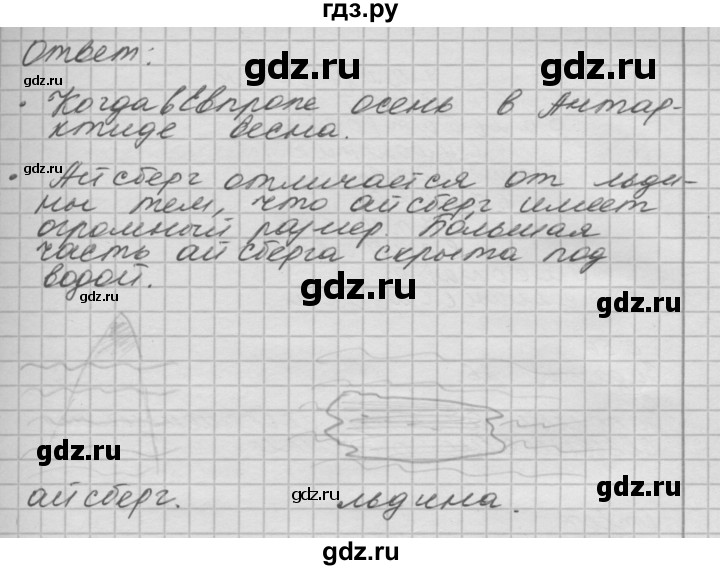 гдз.ру
Ответ:
gdz.ru
gdz.ru
gdz.ru
• Когда в Европе осень в Антар-
ктиде весна.
gdz.ru
• Айсберг отличается от льди-
ны тем, что айсберг имеет
огромный размер. Большая
часть айсберга скрыта под
водой.
gdz.ru
gdz.ru
gdz.ru
gdz.ru
gdz.ru
айсберг.
gdz.ru
льдина.
gdz.ru
gdz.ru